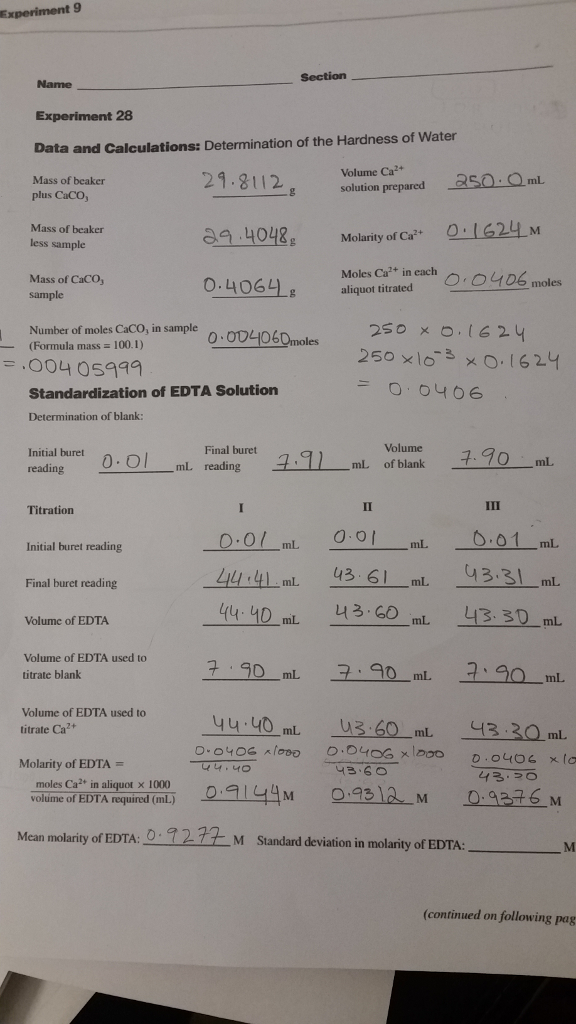 Experiment 9
Name Section
Experiment 28
Data and Calculations: Determination of the Hardness of Water
Mass of beaker plus CaCO3 29.8112 g Volume Ca2+ solution prepared 250.0 mL
Mass of beaker less sample 29.4048 g Molarity of Ca2+ 0.1624 M
Mass of CaCO3 sample 0.4064 g Moles Ca2+ in each aliquot titrated 0.0406 moles
Number of moles CaCO3 in sample (Formula mass = 100.1) 0.004060 moles 250 x 0.1624
=.00405999 250 x10-3 x 0.1624
= 0.0406
Standardization of EDTA Solution
Determination of blank:
Initial buret reading 0.01 mL Final buret reading 7.91 mL Volume of blank 7.90 mL
Titration I II III
Initial buret reading 0.01 mL 0.01 mL 0.01 mL
Final buret reading 44.41 mL 43.61 mL 43.31 mL
Volume of EDTA 44.40 mL 43.60 mL 43.30 mL
Volume of EDTA used to titrate blank 7.90 mL 7.90 mL 7.90 mL
Volume of EDTA used to titrate Ca2+ 44.40 mL 43.60 mL 43.30 mL
0.0406 x1000 0.0406 x1000 0.0406 x10
Molarity of EDTA = 44.40 43.60 43.30
moles Ca2+ in aliquot × 1000
volume of EDTA required (mL) 0.9144 M 0.9312 M 0.9376 M
Mean molarity of EDTA: 0.9277 M Standard deviation in molarity of EDTA: M
(continued on following pag